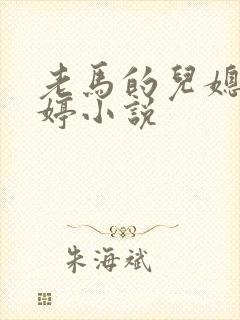 老馬的兒媳
婷小説
朱海斌